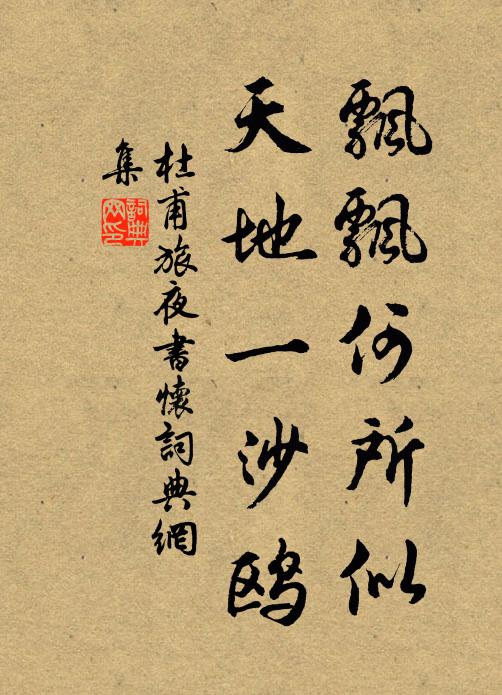 飄飄何所似
天地一沙鸥
杜甫旅夜書懷詞典網
集
詞典網印